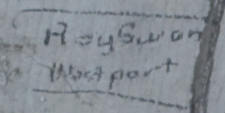 Roy Swan
Westport